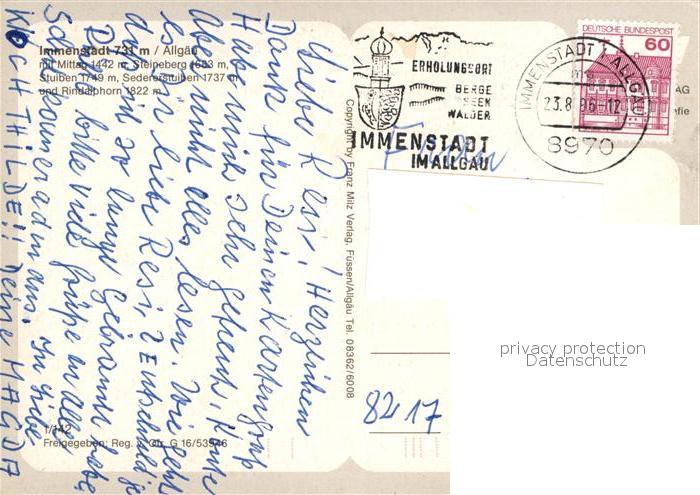 Immenstadt 731 m / Allgäu
mit Mittag 1442 m, Steineberg 1683 m,
Stuiben 1749 m, Sedererstuiben 1737 m
und Rindalphorn 1822 m
Liebe Resi! Herzlichen
Dank für Deinen Kartengruß
Habe mich sehr gefreut, konnte
Aber nicht alles lesen. Wie geht
es Dir liebe Resi, Entschuldige
das ich so lange Gebraucht habe
bitte viele Grüße an alle
aus. In Liebe
KOCH THILDE!! Deine MAGDA
1/142
Freigegeben: Reg. v. Obb. G 16/53946
Copyright by Franz Milz Verlag, Füssen/Allgäu Tel. 08362/6008
ERHOLUNGSORT
BERGE
SEEN
WÄLDER
IMMENSTADT
IM ALLGÄU
IMMENSTADT 1, ALLGÄU
23.8.86-12
8970
DEUTSCHE BUNDESPOST
60
AG
8217
privacy protection
Datenschutz